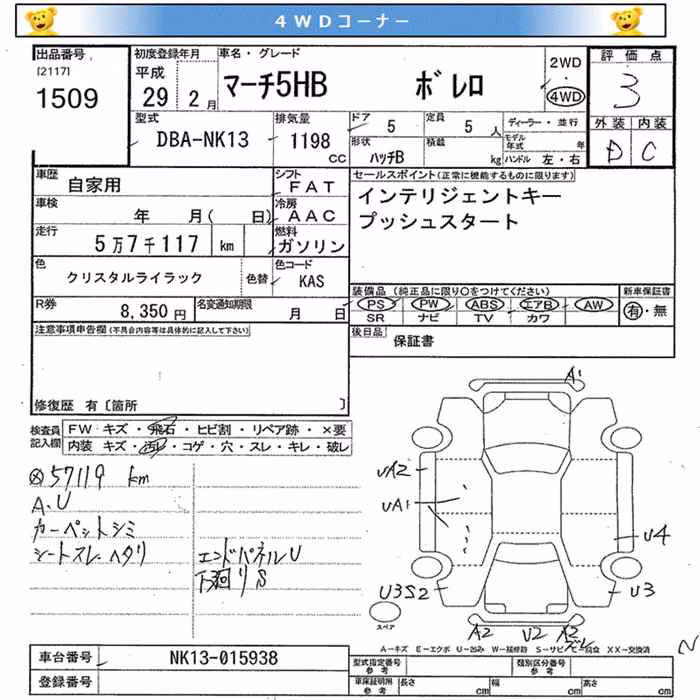 4WDコーナー
出品番号
[2117]
1509
初度登録年月
平成
29 2月
車名・グレード
マーチ5HB ボレロ
2WD
・
4WD
評価点
3
外装 内装
D C
型式
DBA-NK13
排気量
1198
CC
ドア
5
定員
5 人
ディーラー・並行
形状
ハッチB
積載
kg
モデル年式 年
ハンドル 左・右
車歴
自家用
シフト
FAT
車検
年 月( 日)
冷房
AAC
走行
5万7千117 km
燃料
ガソリン
色
クリスタルライラック
色替
色コード
KAS
R券
8,350円
名変通知期限
月 日
セールスポイント(正常に機能するものに限ります)
インテリジェントキー
プッシュスタート
装備品(純正品に限り○をつけてください)
PS PW ABS エアB AW
SR ナビ TV カワ
新車保証書
有・無
後日品
保証書
注意事項申告欄(不具合内容等は具体的に記入して下さい)
修復歴 有〔箇所 〕
検査員記入欄
FW キズ・飛石・ヒビ割・リペア跡・×要
内装 キズ・汚レ・コゲ・穴・スレ・キレ・破レ
57119 km
A.U
カーペットシミ
シートスレ ヘタリ
エンドパネルU
下廻りS
A1
UA2
UA1
U4
U3S2
U3
スペア
A2
U2
A2
A-キズ E-エクボ U-凹み W-補修跡 S-サビ C-腐食 XX-交換済
車台番号
NK13-015938
登録番号
型式指定番号
参考
類別区分番号
参考
車庫証明用
参考
長さ cm
幅 cm
高さ cm